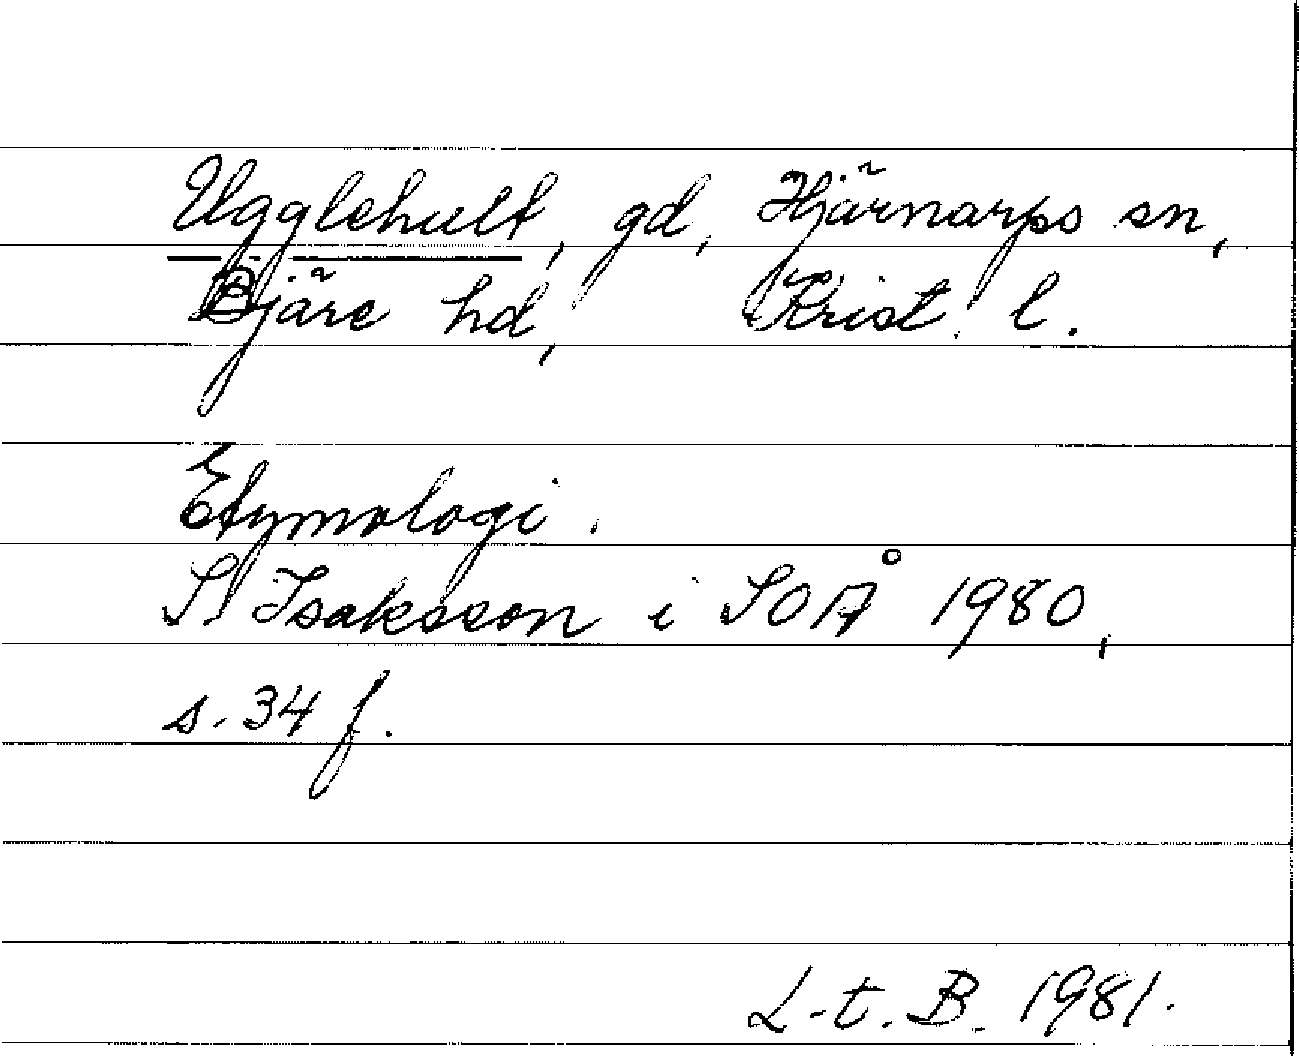 Ugglehult, gd, Hjärnarps sn,
Bjäre hd, Krist. l.
Etymologi.
S. Isaksson i SOÅ 1980,
s. 34 f.
L-t. B. 1981.